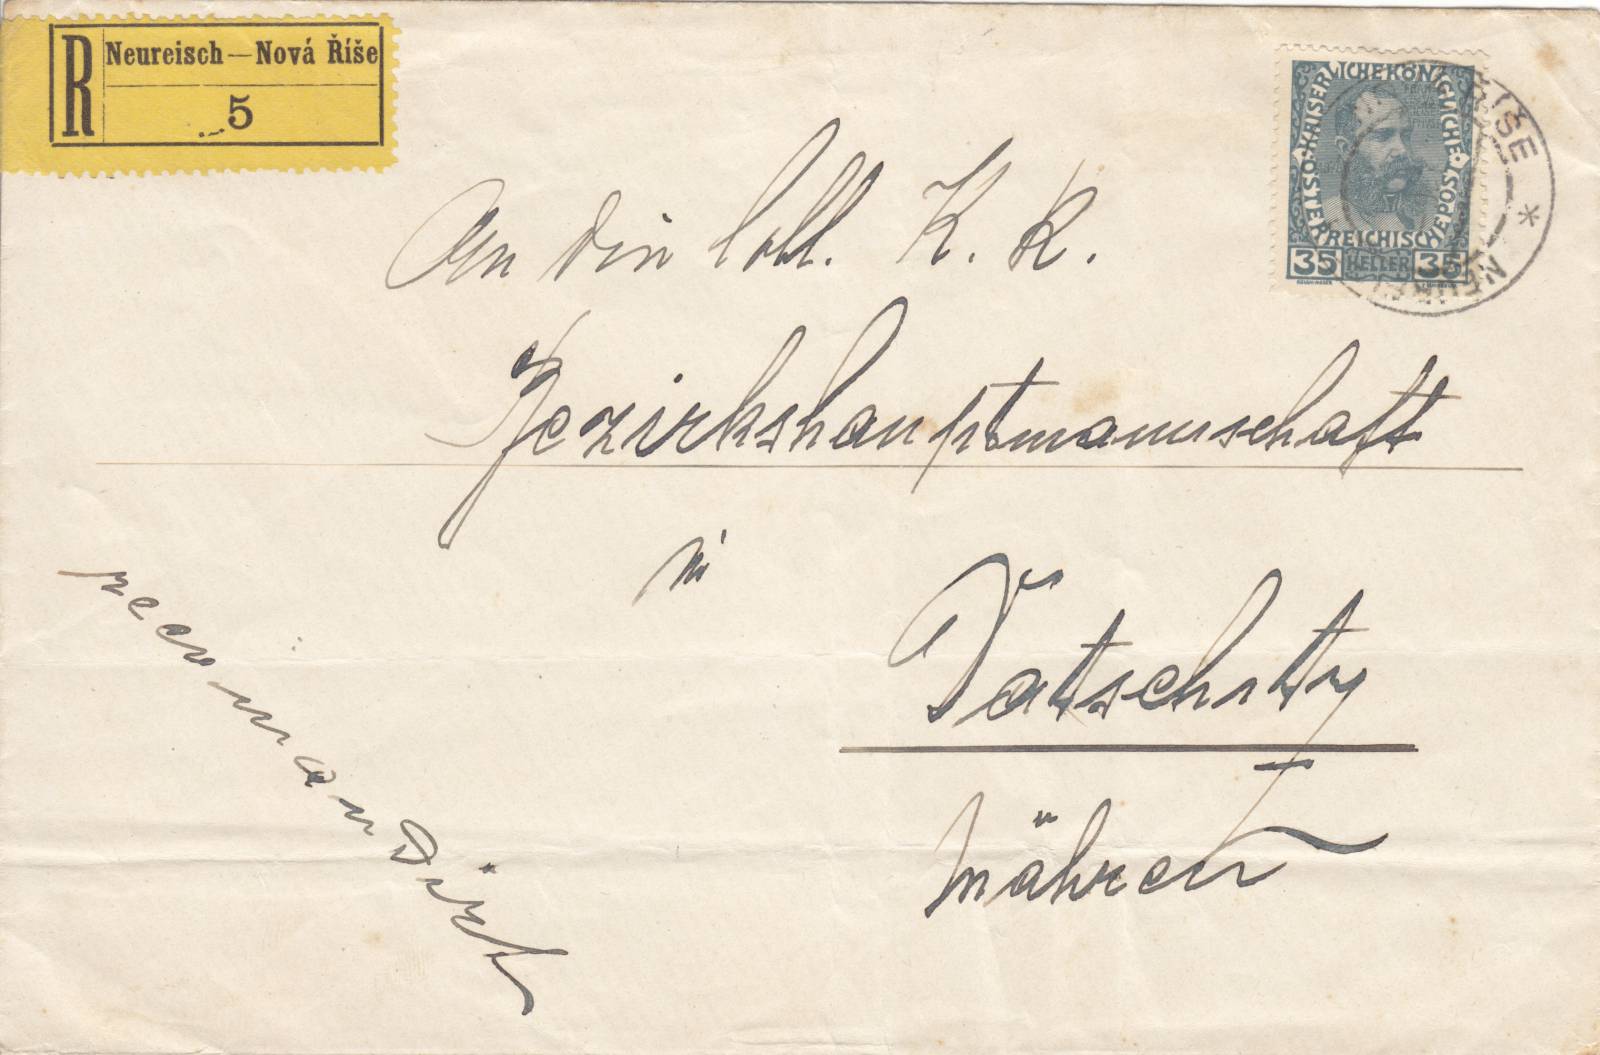 R Neureisch—Nová Říše
5
KAISERLICHE KÖNIGLICHE ÖSTERREICHISCHE POST
35 HELLER 35
ŘÍŠE * NEUR
An die löbl. K. K.
Bezirkshauptmannschaft
in
Datschitz
Mähren
recommandirt